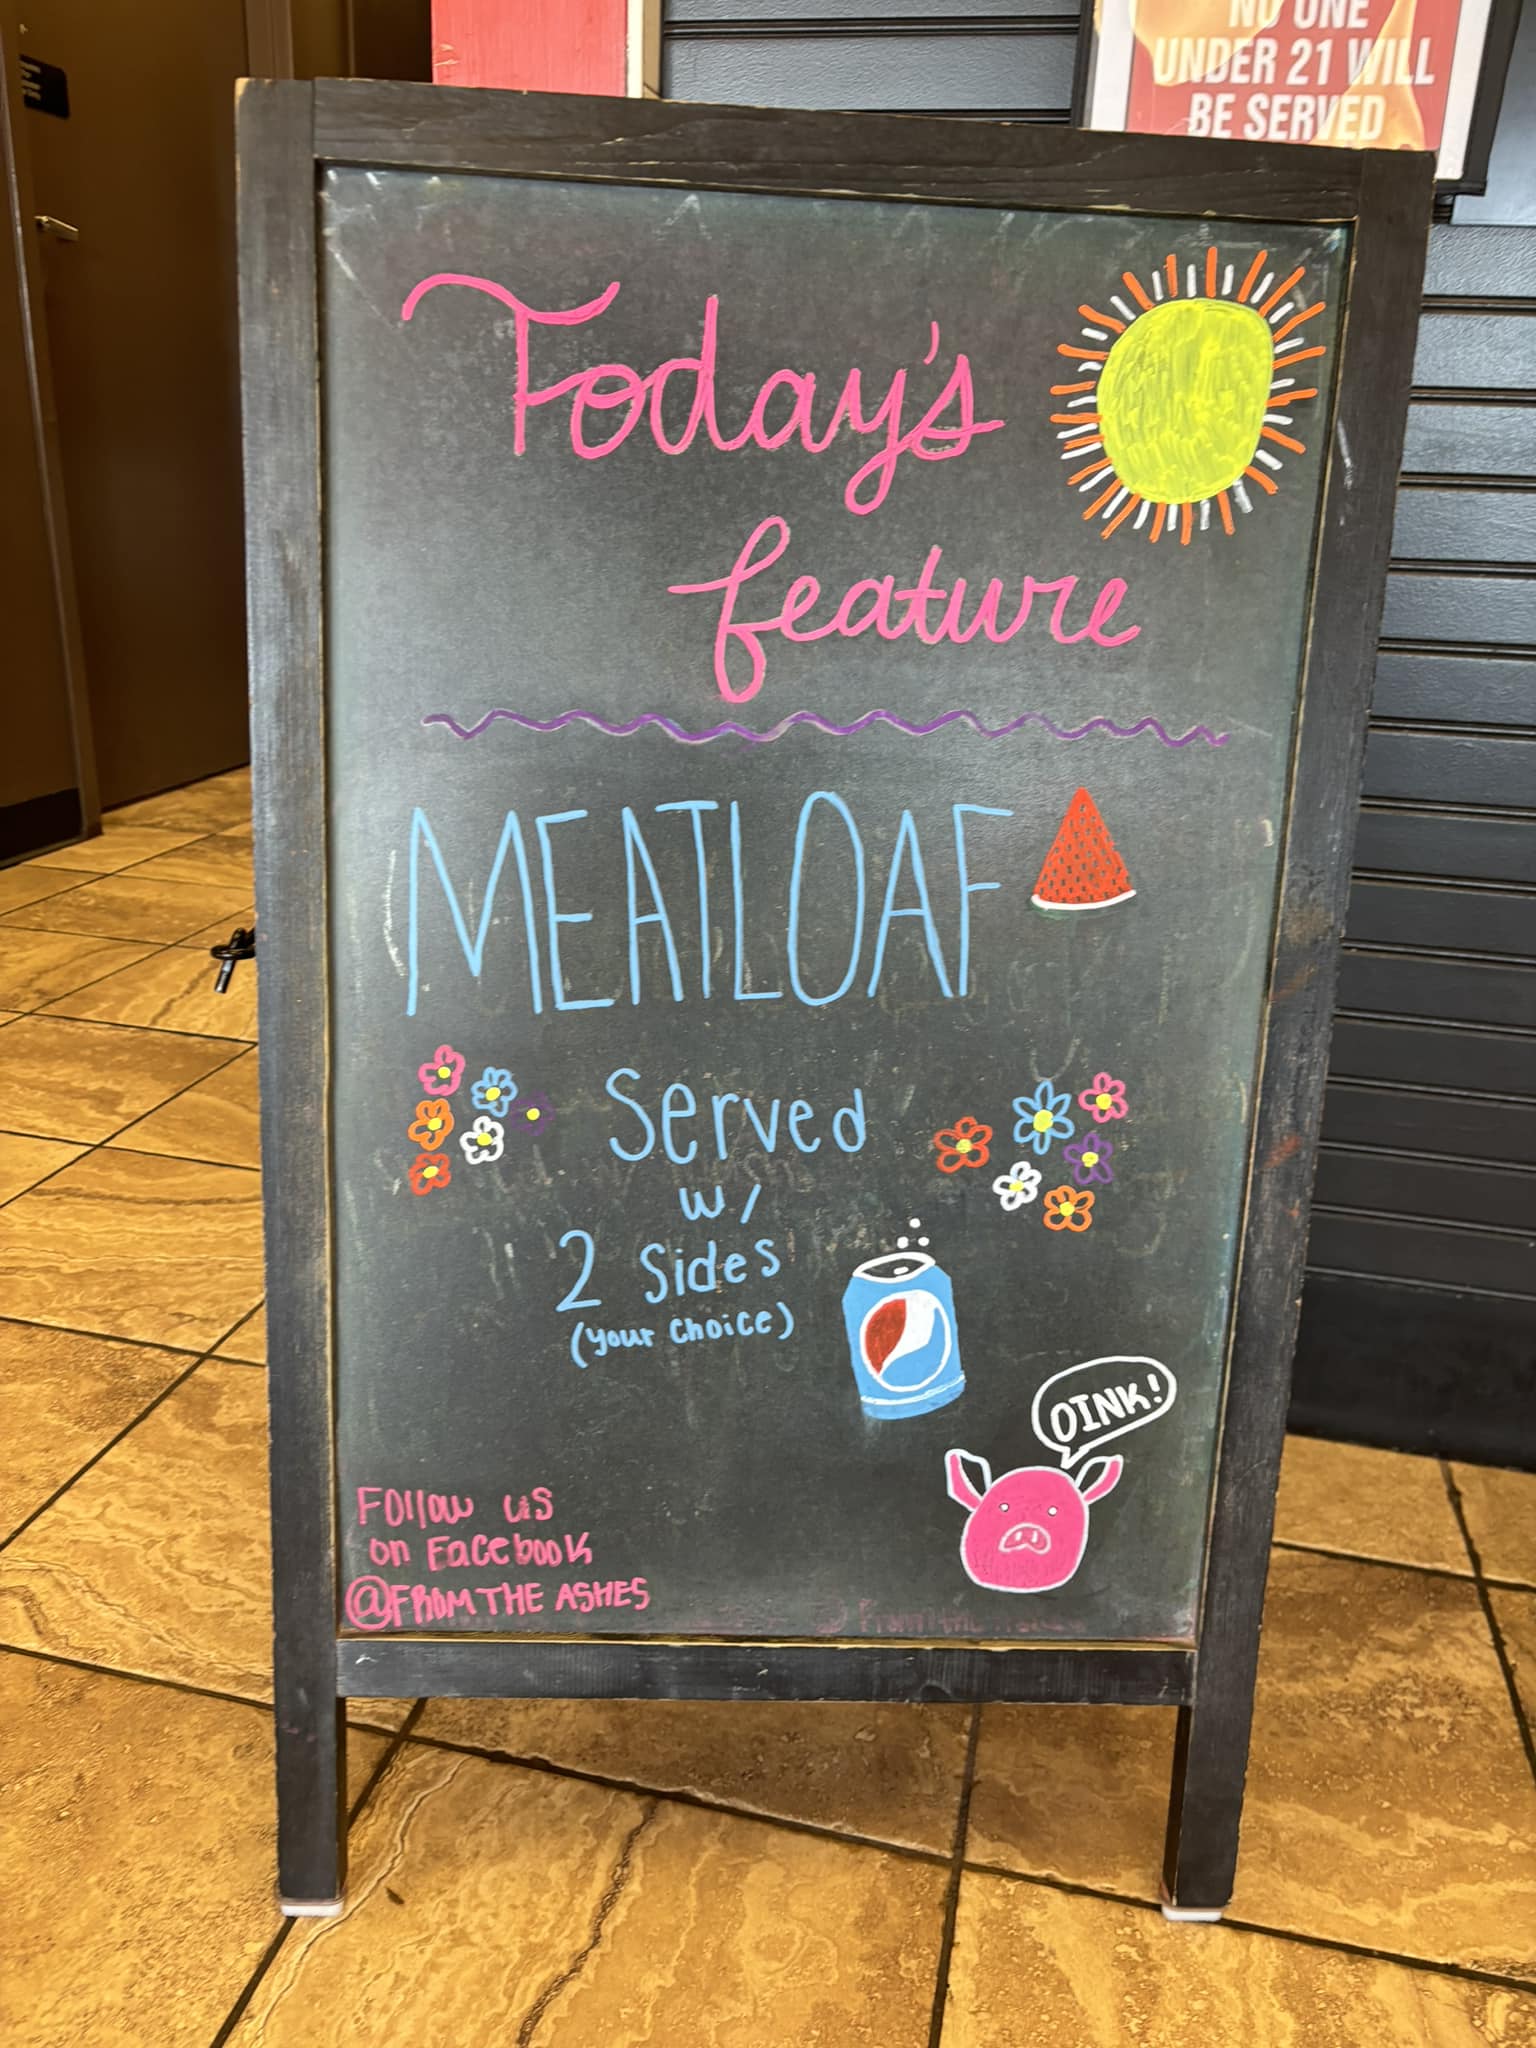 NO ONE
UNDER 21 WILL
BE SERVED
Today's
feature
MEATLOAF
Served
w/
2 Sides
(your choice)
OINK!
Follow us
on Facebook
@FROMTHE ASHES